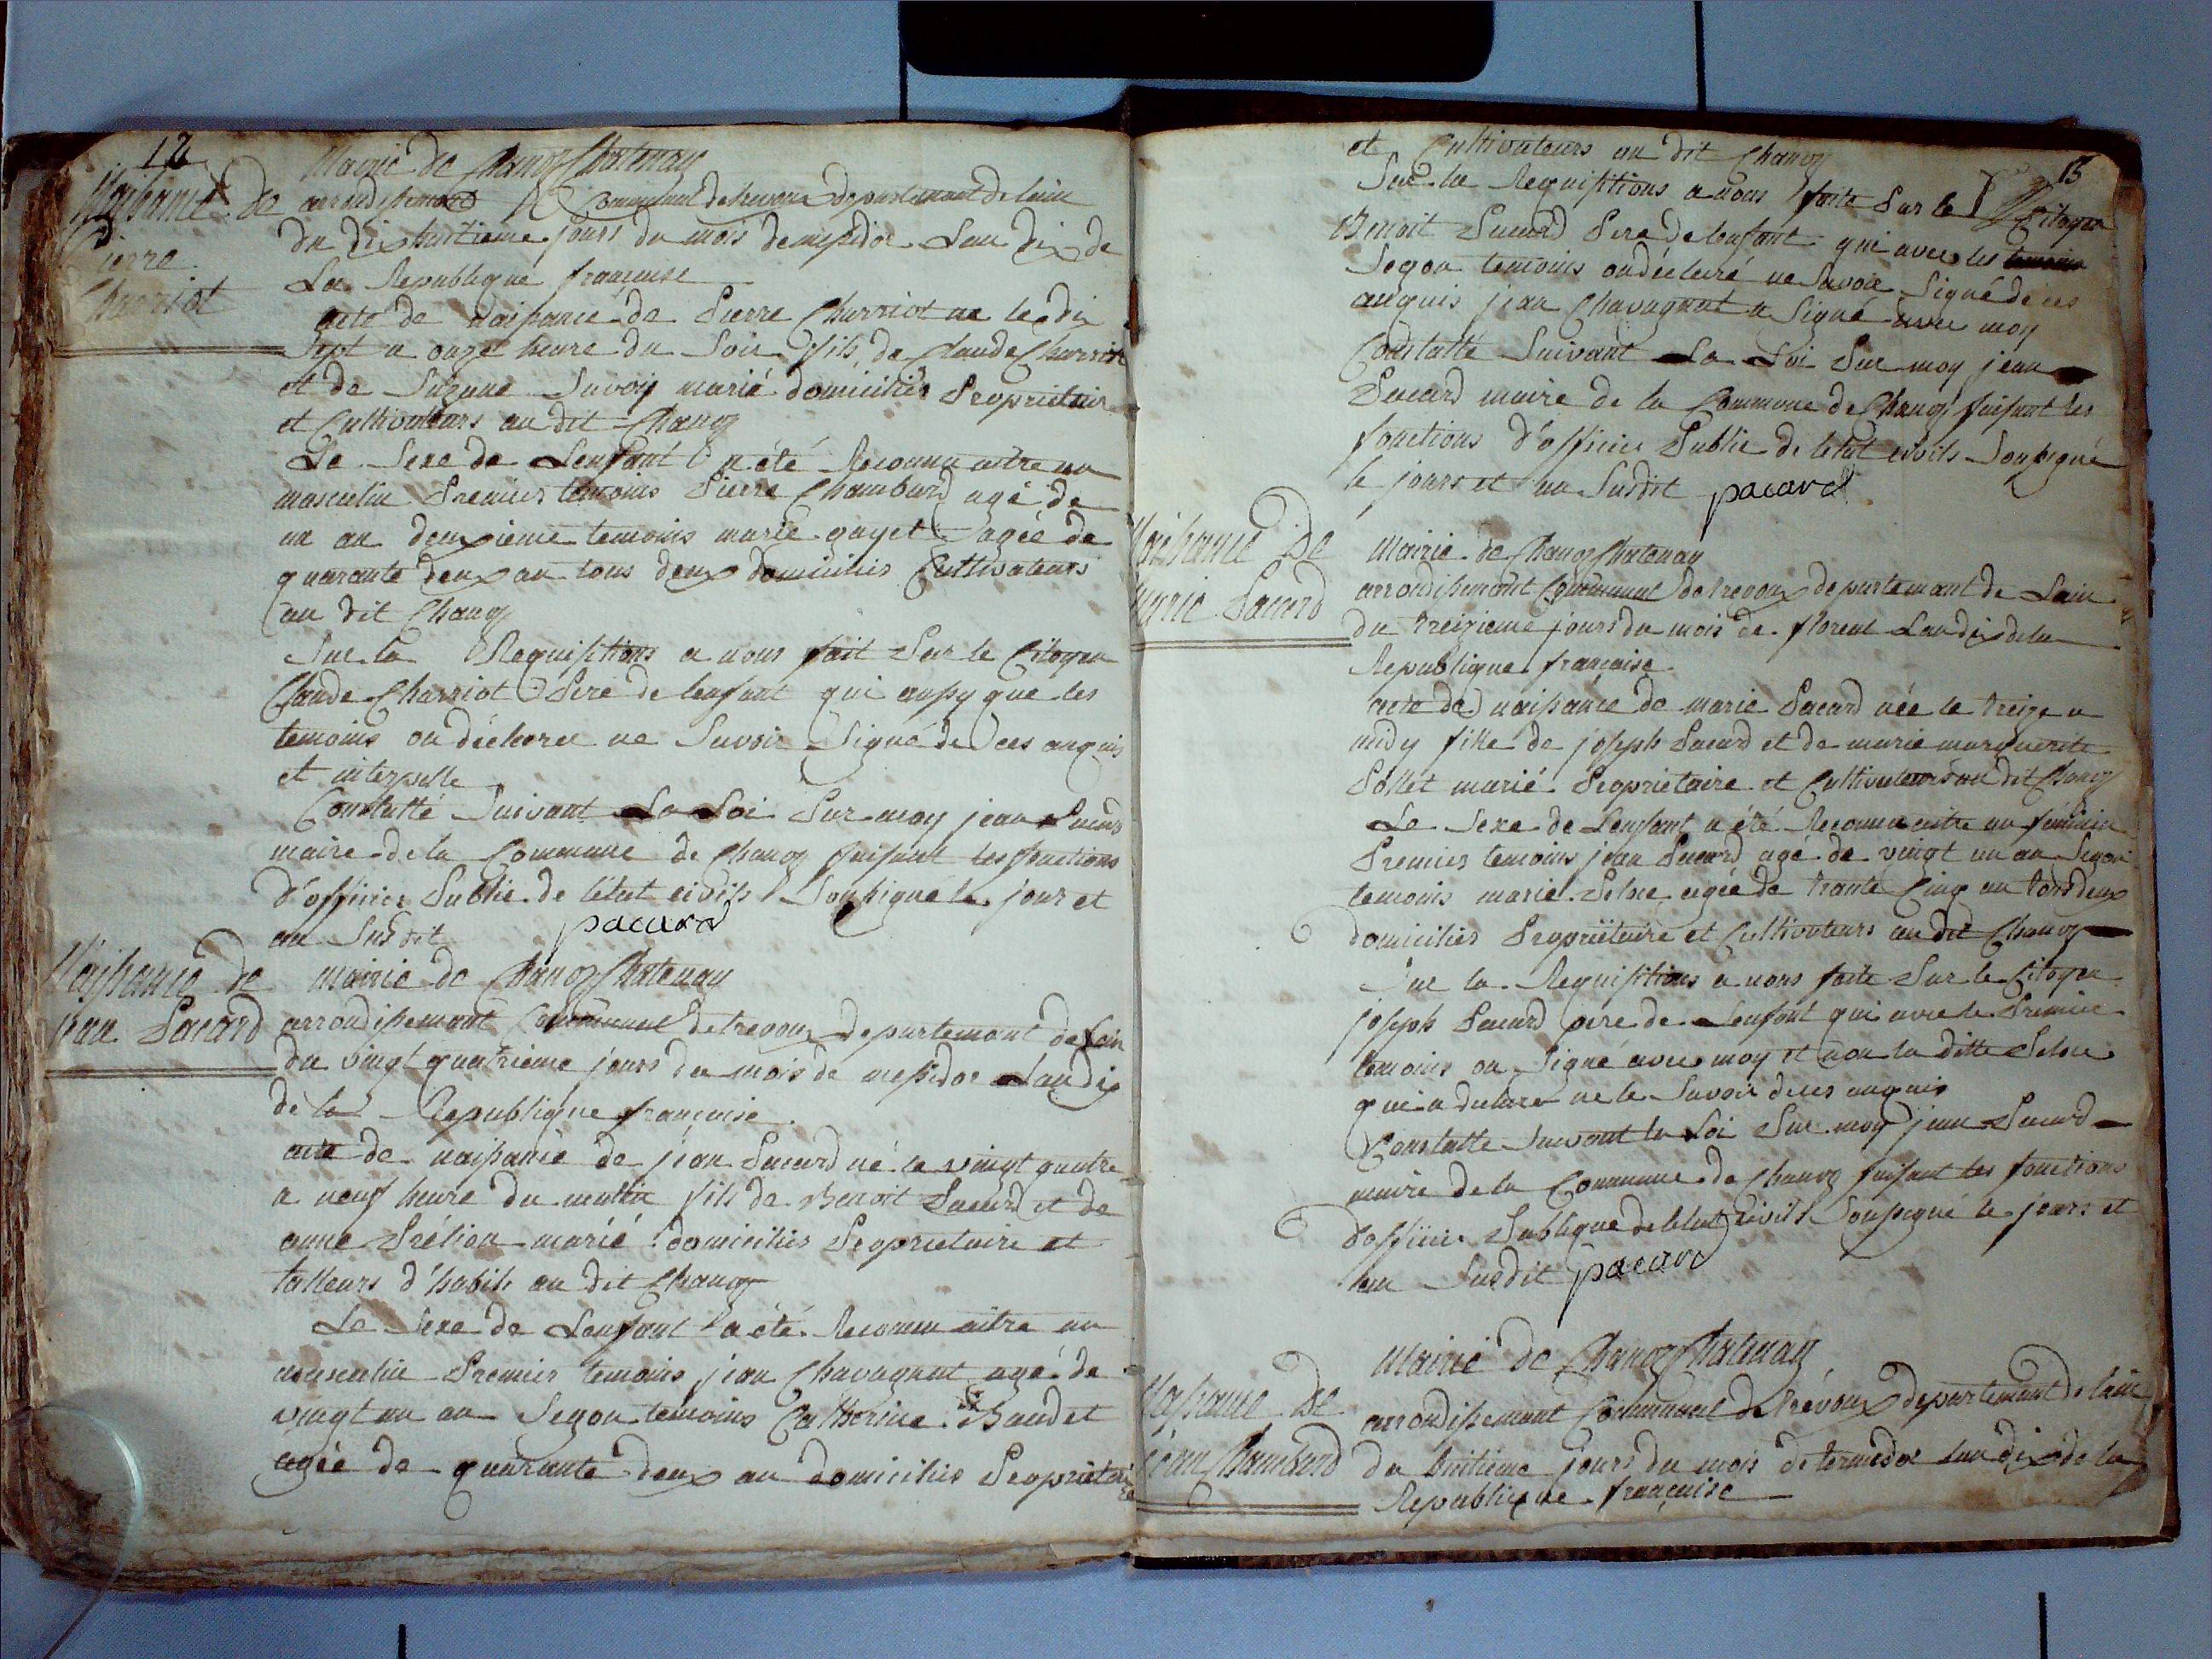 12
Naissance de
Pierre
Charriot
Mairie de Chanoz Chatenay
arrondissement Communal de trevoux departemant de lain
du dix huitieme jours du mois de messidor Lan dix de
La Republique française
acte de naissance de Pierre Charriot ne le dix
sept a onze heure du Soir fils de Claude Charriot
et de Suzane Savoy marié domiciliés Proprietaire
et Cultivateurs au dit Chanoz
Le Sexe de Lenfant a été Reconnu aitre un
masculin Premier temoins Pierre Chambard agé de
un an deuxieme temoins marie gayet agée de
quarante deux an tous deux domiciliés Cultivateurs
au dit Chanoz
Sur la Requisitions a nous fait Par le Citoyen
Claude Charriot Pere de lenfant qui aussy que les
temoins on déclarer ne Savoir Signé de ces anquis
et interpelle
Constatté Suivant La Loi Par moy jean Pacard
maire de la Commune de Chanoz faisant les fonctions
d'officier Public de létat civils Soussigné le jour et
an Susdit pacard
Naissance de
jean Pacard
mairie de Chanoz Chatenay
arrondissemant Communal de trevoux departemant de Lain
du vingt quatrieme jours du mois de messidor Lan dix
de la Republique française
acte de naissance de jean Pacard né le vingt quatre
a neuf heure du mattin fils de Benoit Pacard et de
anne Prélion marié domiciliés Proprietaire et
talleurs d'habits au dit Chanoz
Le Sexe de Lenfant a été Reconnu aître un
masculin Premier temoins jean Chavagnat agé de
vingt un an Segon temoins Catherine Baudet
agée de quarante deux an domiciliés Proprietaire
13
et Cultivateurs au dit Chanoz
Sur la Requisitions a nous faite Par le Citoyen
Benoit Pacard Pere de lenfant qui avec les
Segon temoins on déclaré ne Savoir Signé de ces
anquis jean Chavagnat a Signé avec moy
Constatté Suivant La Loi Par moy jean
Pacard maire de la Commune de Chanoz faisant les
fonctions d'officier Public de létat civils Soussigné
le jours et an Susdit pacard
Naissance De
Marie Pacard
Mairie de Chanoz Chatenay
arrondissemant Communal de trevoux departemant de Lain
du treizieme jours du mois de floreal Lan dix de la
Republique française
acte de naissance de marie Pacard née le treize a
midy fille de joseph Pacard et de marie marguerite
Pollet marié Proprietaire et Cultivateurs au dit Chanoz
Le Sexe de Lenfant a été Reconnu aitre un féminin
Premier temoins jean Pacard agé de vingt un an Segon
temoins marie agée de trante Cinq an tous deux
domiciliés Propriétaire et Cultivateurs au dit Chanoz
Sur la Requisitions a nous faite Par le Citoyen
joseph Pacard pere de Lenfant qui avec le Premier
temoins on Signé avec moy et non la ditte
qui a declarer ne le Savoir de ces anquis
Constatte Suivant la Loi Par moy jean Pacard
maire de la Commune de Chanoz faisant les fonctions
d'officier Publique de létat civils Soussigné le jours et
an Susdit pacard
Naissance De
jean Chambard
Mairie de Chanoz Chatenay
arrondissemant Communal de trévoux departemant de lain
du huitieme jours du mois de termedor lan dix de la
Republique française